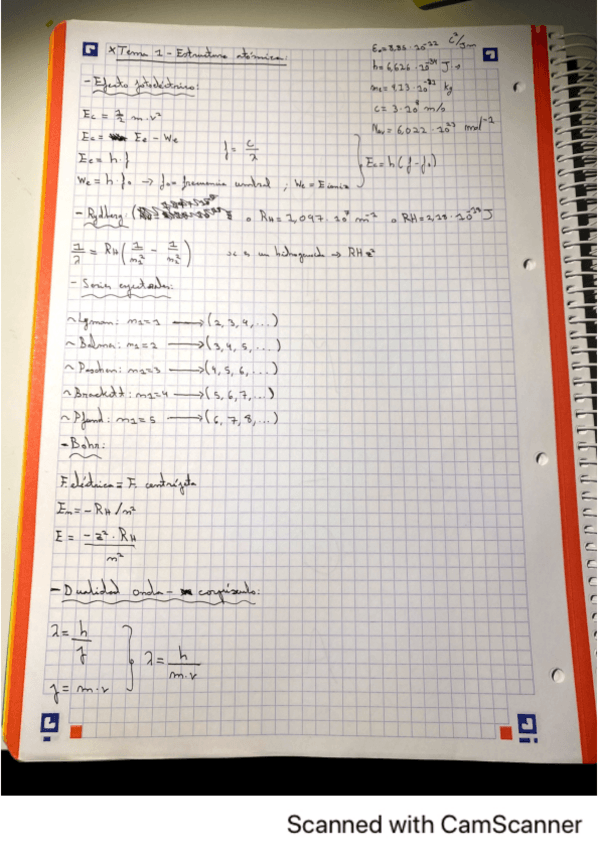 * Tema 1 - Estructura atómica:
ε₀ = 8,85 · 10⁻¹² C²/Jm
h = 6,626 · 10⁻³⁴ J · s
me = 9,13 · 10⁻³¹ kg
c = 3 · 10⁸ m/s
Nav = 6,022 · 10²³ mol⁻¹
- Efecto fotoeléctrico:
Ec = 1/2 m · v²
Ec = Ee - We
f = c/λ
Ee = h · f
We = h · f₀ → f₀ = frecuencia umbral ; We = E ioniz
} Ec = h (f - f₀)
- Rydberg ( o RH = 1,097 · 10⁷ m⁻¹ o RH = 2,18 · 10⁻¹⁸ J
1/λ = RH (1/n₁² - 1/n₂²) si es un hidrogenoide → RH z²
- Series espectrales:
~ Lyman: n₁ = 1 → (2, 3, 4, ...)
~ Balmer: n₁ = 2 → (3, 4, 5, ...)
~ Paschen: n₁ = 3 → (4, 5, 6, ...)
~ Brackett: n₁ = 4 → (5, 6, 7, ...)
~ Pfund: n₁ = 5 → (6, 7, 8, ...)
- Bohr:
F. eléctrica = F. centrípeta
En = - RH / n²
E = - z² · RH / n²
- Dualidad onda - corpúsculo:
λ = h/p
p = m · v
} λ = h / m · v
Scanned with CamScanner